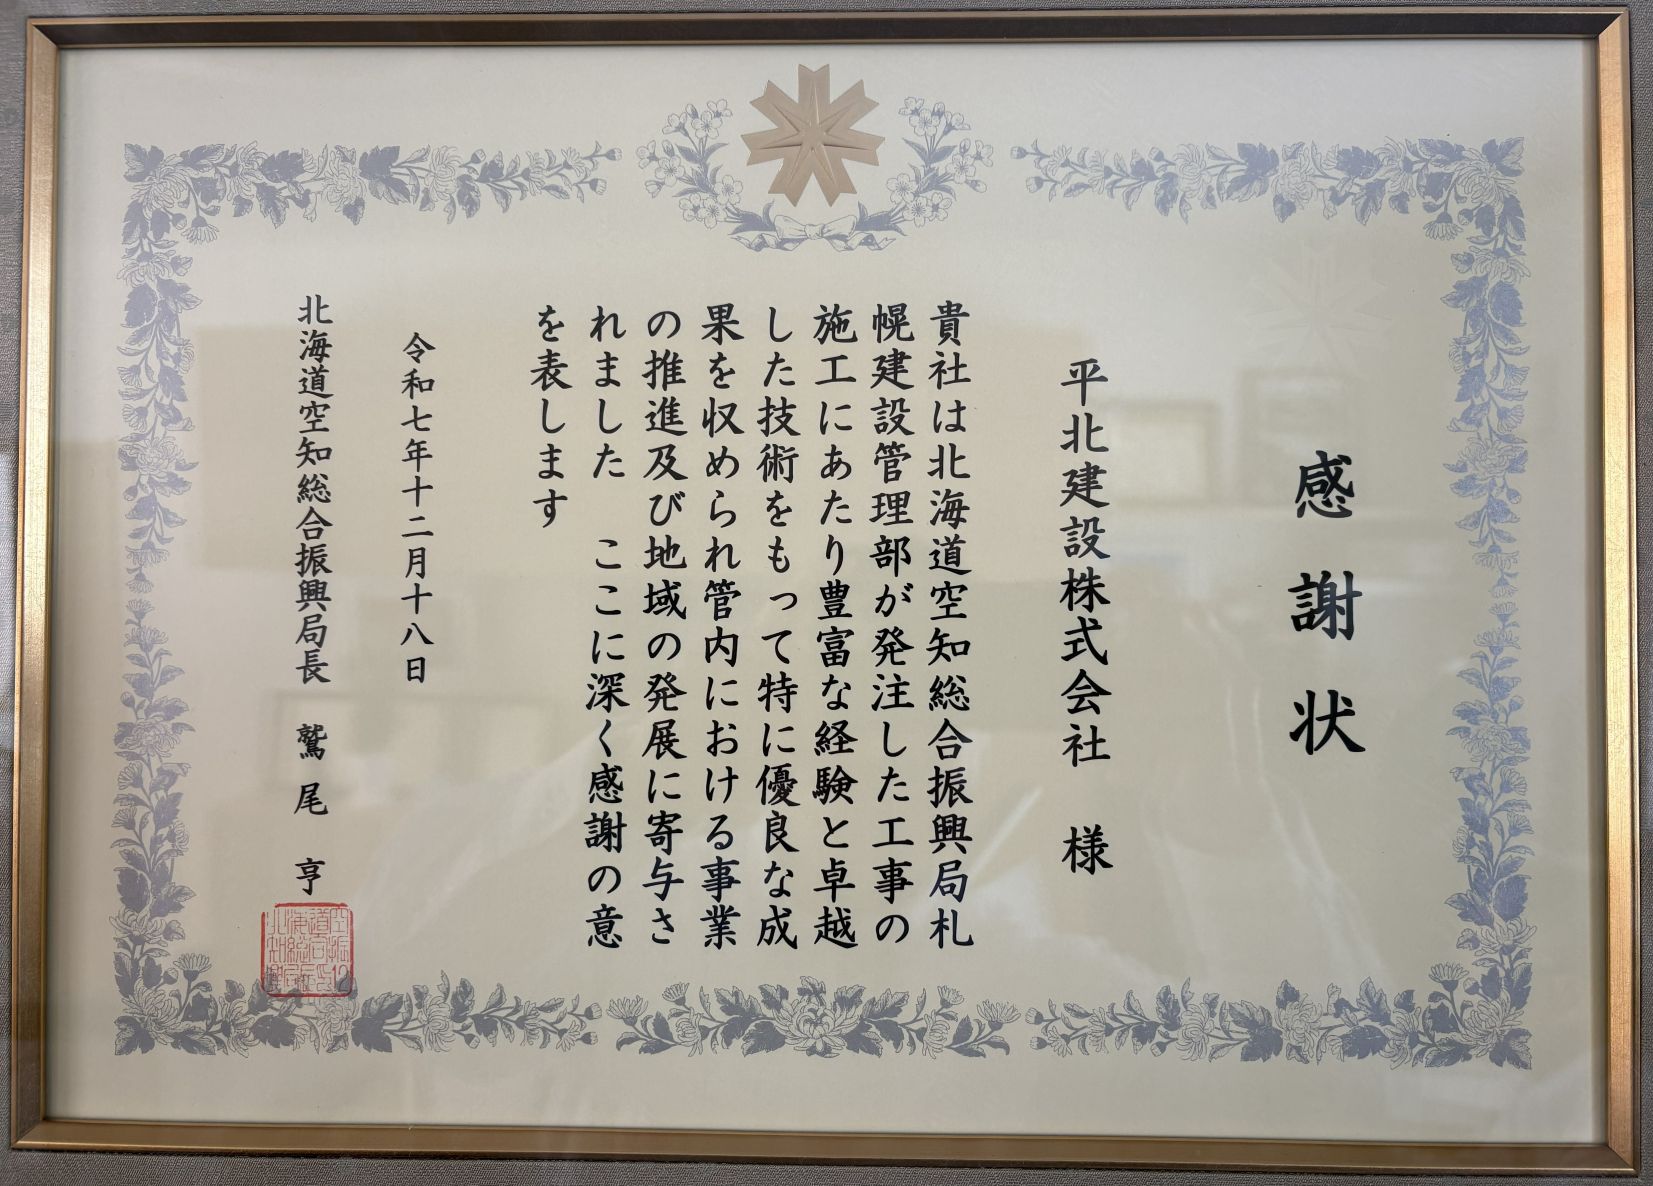 感謝状
平北建設株式会社 様
貴社は北海道空知総合振興局札
幌建設管理部が発注した工事の
施工にあたり豊富な経験と卓越
した技術をもって特に優良な成
果を収められ管内における事業
の推進及び地域の発展に寄与さ
れました ここに深く感謝の意
を表します
令和七年十二月十八日
北海道空知総合振興局長 鷲尾 亨